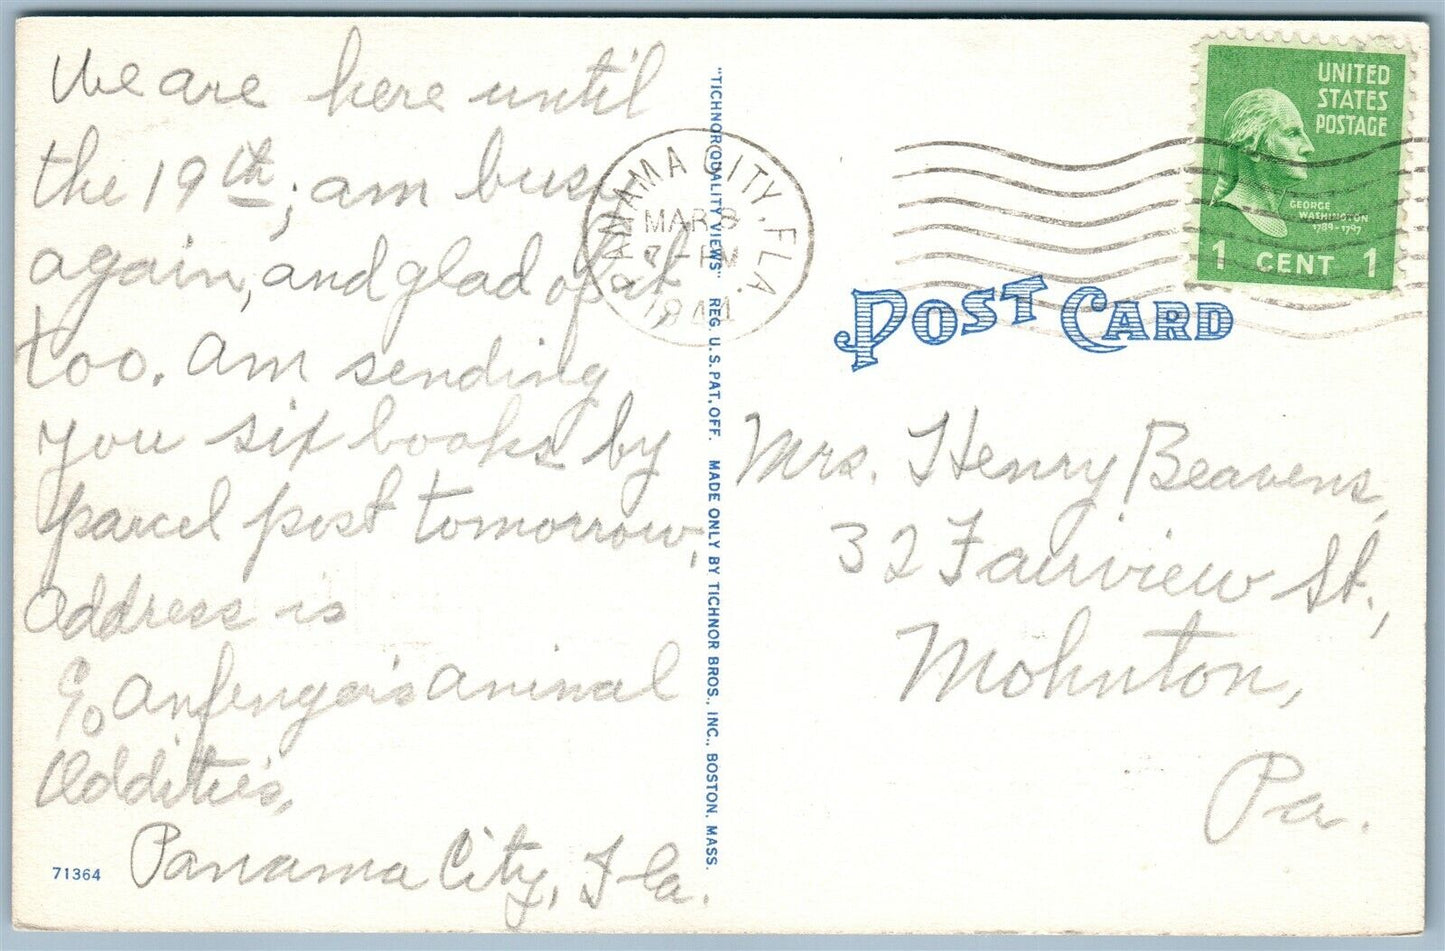 We are here until
the 19th; am busy
again, and glad of it
too. Am sending
you six books by
parcel post tomorrow;
address is
c/o Anfenger's Animal
Oddities,
Panama City, Fla.
71364
"TICHNOR QUALITY VIEWS" REG. U.S. PAT. OFF. MADE ONLY BY TICHNOR BROS., INC., BOSTON, MASS.
PANAMA CITY, FLA.
MAR 8
7 - PM
1944
UNITED
STATES
POSTAGE
GEORGE
WASHINGTON
1789-1797
1 CENT 1
POST CARD
Mrs. Henry Beavens,
32 Fairview St.,
Mohnton,
Pa.